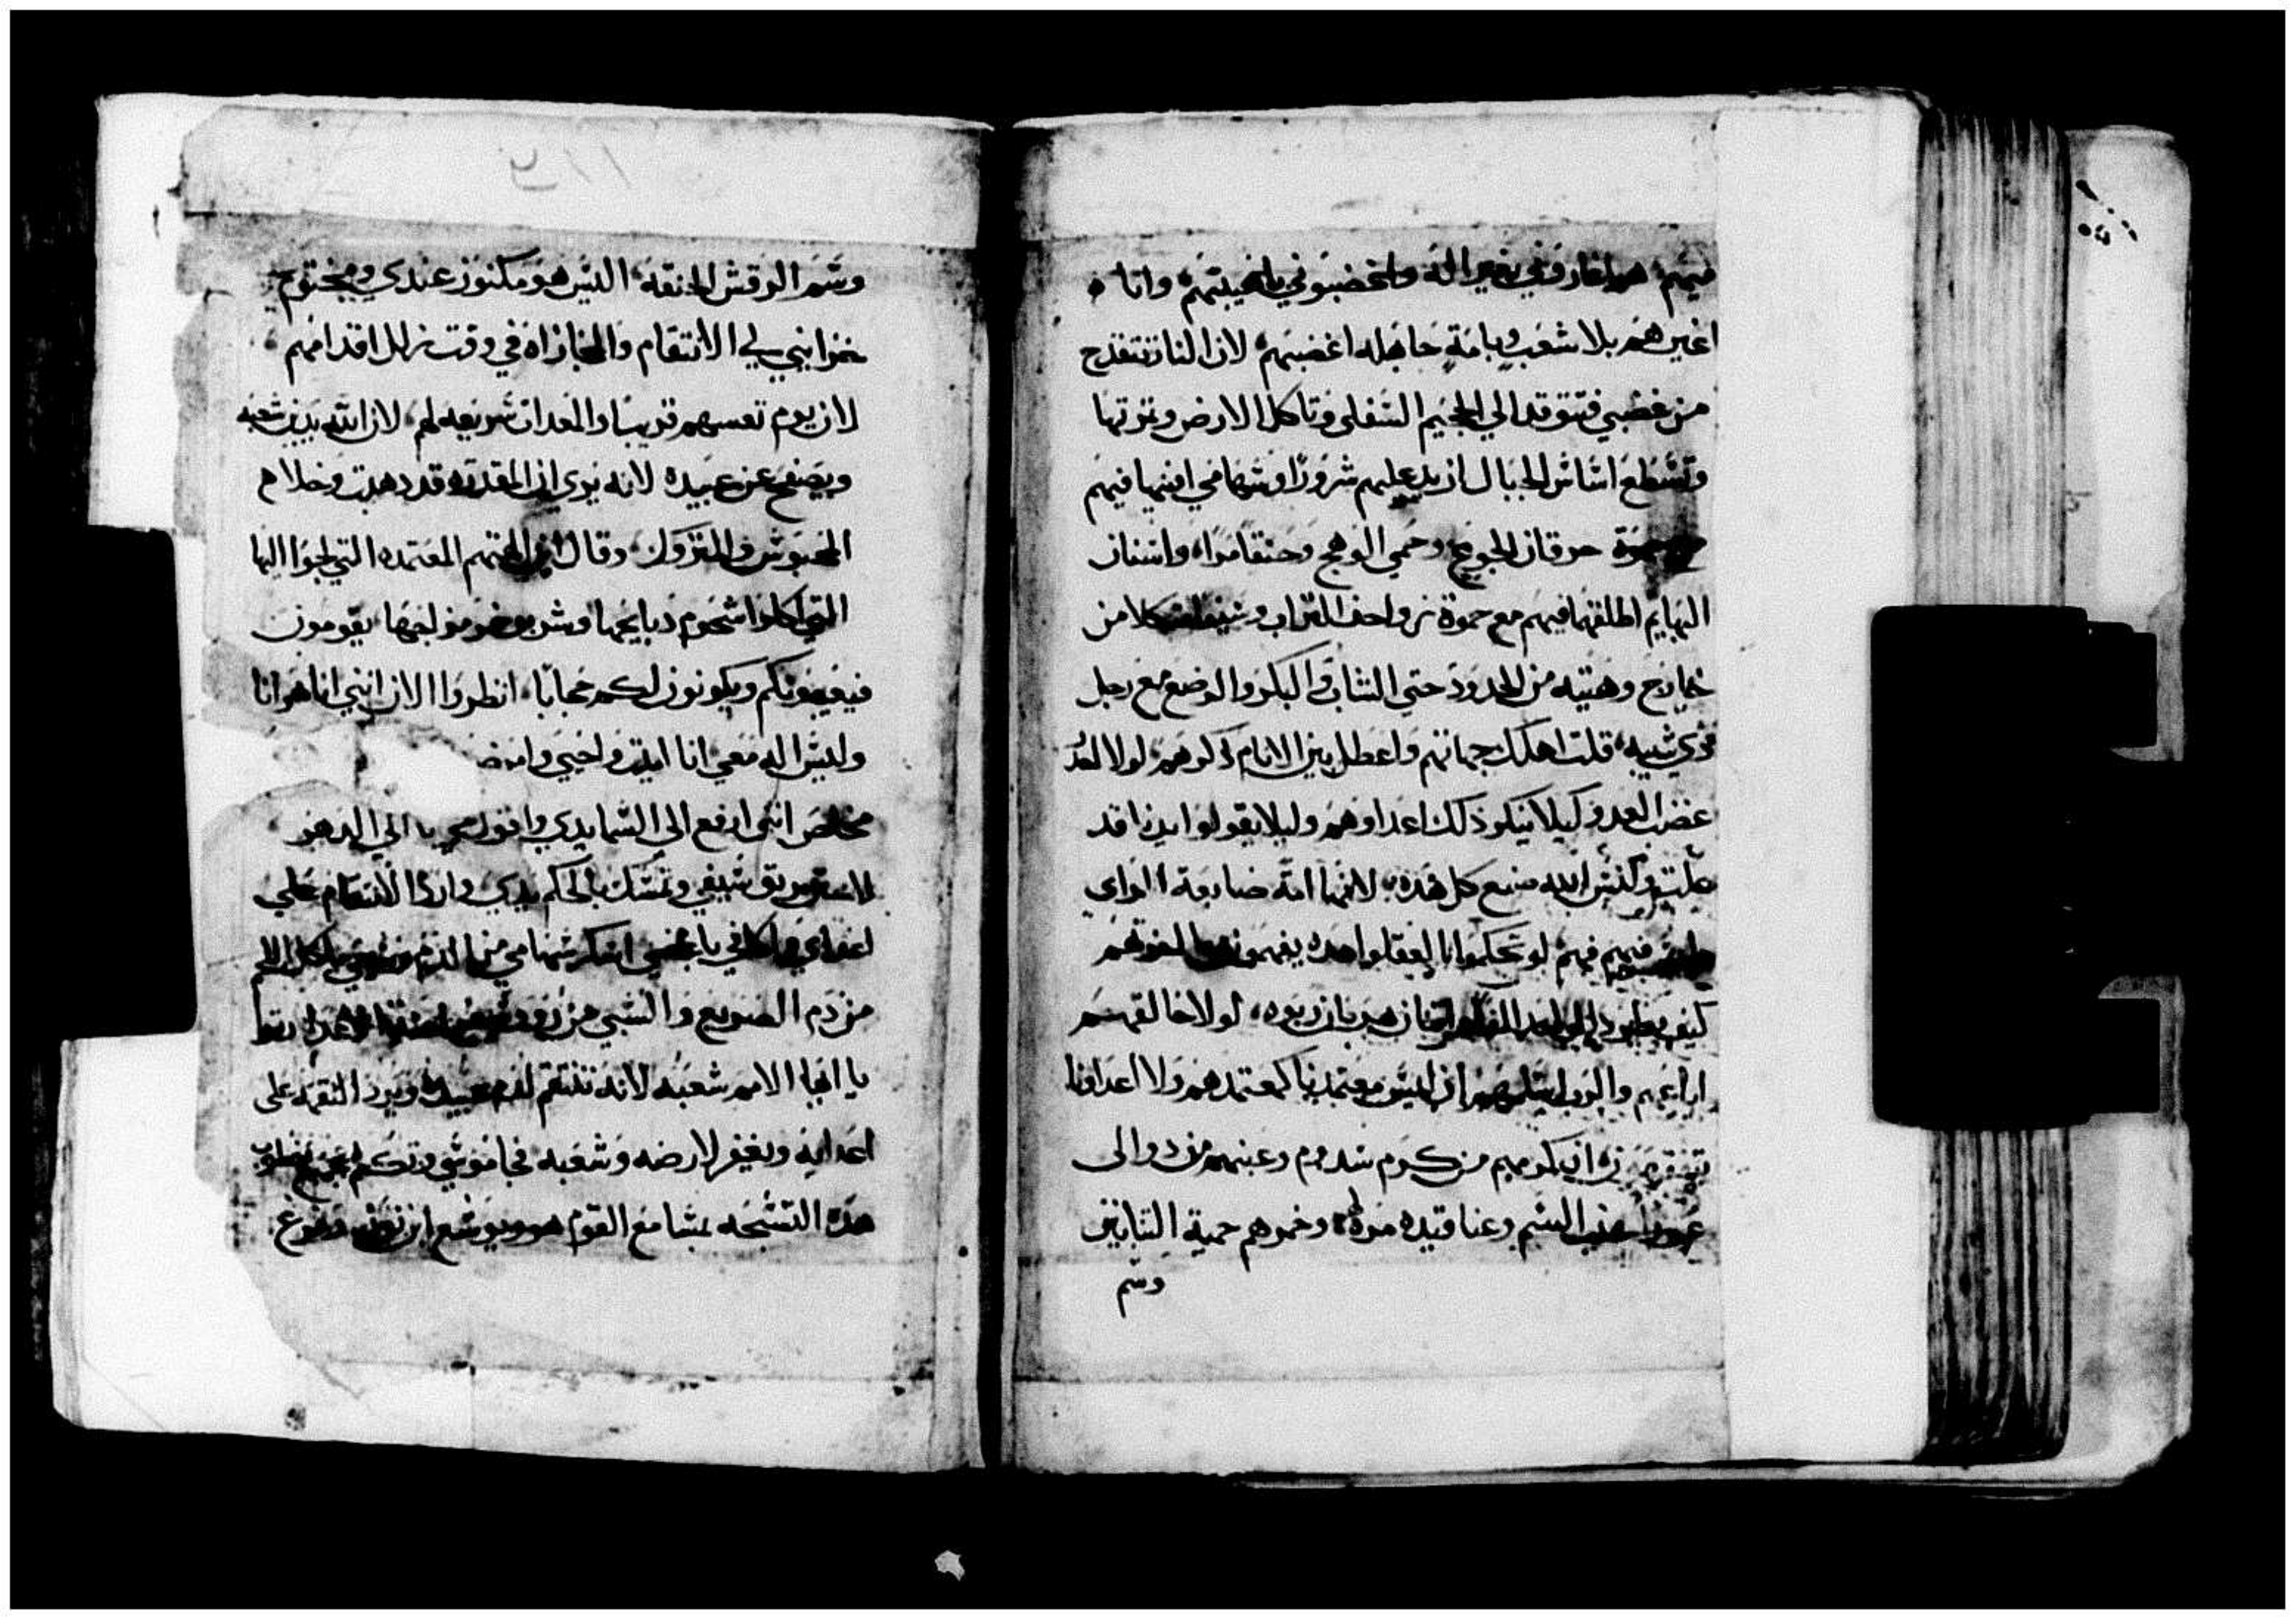 فيهم هم اغاروني بغير اله واغضبوني بالخيبتهم وانا
اغيرهم بلا شعب وبامة جاهله اغضبهم لان النار تتقدح
من غضبي فتتوقد الي الجحيم السفلى وتاكل الارض وغرتها
وتشطع اساس الجبال ازيد عليهم شرورا وسهامي افنيها فيهم
حرقان الجوع وحمي الوهج وحتقا مرا، واسنان
البهايم اطلقها فيهم مع حموة زواحف التراب وسيف متكلا من
خارج وهيبه من الخدور حتي الشاب والبكر والوضع مع رجل
ذوي شيبه، قلت اهلك جهاتهم واعطل بين الانام ذكرهم لولا العد
غضب العدو كيلا ينكر ذلك اعداوهم وليلا يقولوا ايدنا قد
علت وليس الله صنع كل هذه لانها امة ضايعة الراي
فيهم فهم لو تحكموا انا لعقلوا هذه يفهمون اخرتهم
كيف يطرد ربوه، لولا خالقهم
اباعهم والرب اسلمهم ان ليس معتمدنا كمعتمدهم ولا اعداونا
كرومهم من كروم سدوم وعنبهم من دوالى
عنب السم وعناقيده مرة وخمرهم حمية التنانين
وسم
وسم الرقش الحنقه، اليس هو مكنوز عندي ومختوم
خزايني لي الانتقام والمجازاه في وقت تزلل اقدامهم
لان يوم تعسهم قريبا والمعدات سريعه لهم، لان الله يدين شعبه
ويصفح عن عبيده لانه يري ان المقدره قد ذهبت وخلا م
المحبوس والمتروك، وقال اين الهتهم المعتمده التي لجوا اليها
التي اكلوا شحوم ذبايحها وشربوا خمور لجها، يقومون
فيعينونكم ويكونون لكم حجابا، انظروا الان انني انا هو انا
وليس اله معي انا اميت واحيي وامرض
مخلص انني ارفع الى السما يدي واقول حي يا الي الدهر
لاسن بريق سيفي وتمسك بالحكم يدي وارد الانتقام علي
اعداي واكافي باغضي اسكر سهامي من الدم
من دم الصريع والسبي من روو
يا ايها الامم شعبه لانه ينتقم لدم عبيده ويرد النقمه على
اعدايه ويغفر لارضه وشعبه فجا موسي وتكلم بجميع خطوب
هذه التسبحه بمسامع القوم هو ويوشع ابن نون، وفرغ